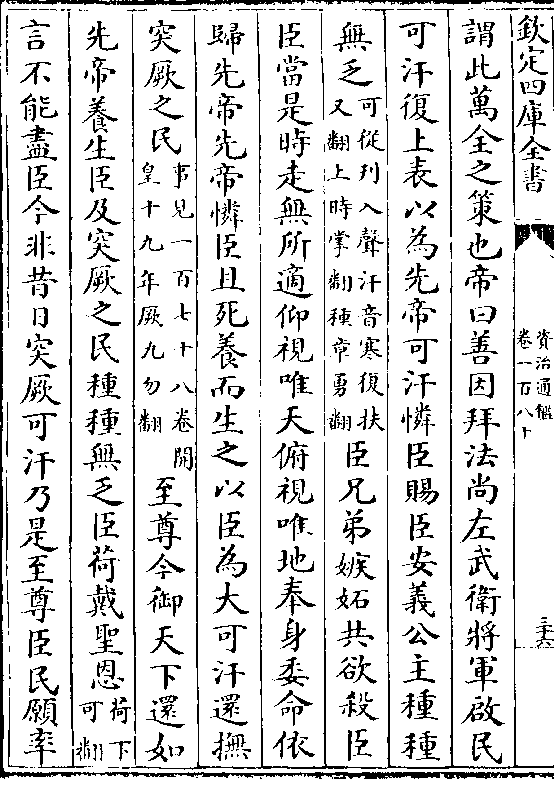 欽定四庫全書
資治通鑑
卷一百八十
三十六
謂此萬全之策也帝曰善因拜法尚左武衛將軍啟民
可汗復上表以為先帝可汗憐臣賜臣安義公主種種
無乏可從刋入聲汗音寒復扶又翻上時掌翻種章勇翻臣兄弟嫉妬共欲殺臣
臣當是時走無所適仰視唯天俯視唯地奉身委命依
歸先帝先帝憐臣且死養而生之以臣為大可汗還撫
突厥之民事見一百七十八卷開皇十九年厥九勿翻至尊今御天下還如
先帝養生臣及突厥之民種種無乏臣荷戴聖恩荷下可翻
言不能盡臣今非昔日突厥可汗乃是至尊臣民願率